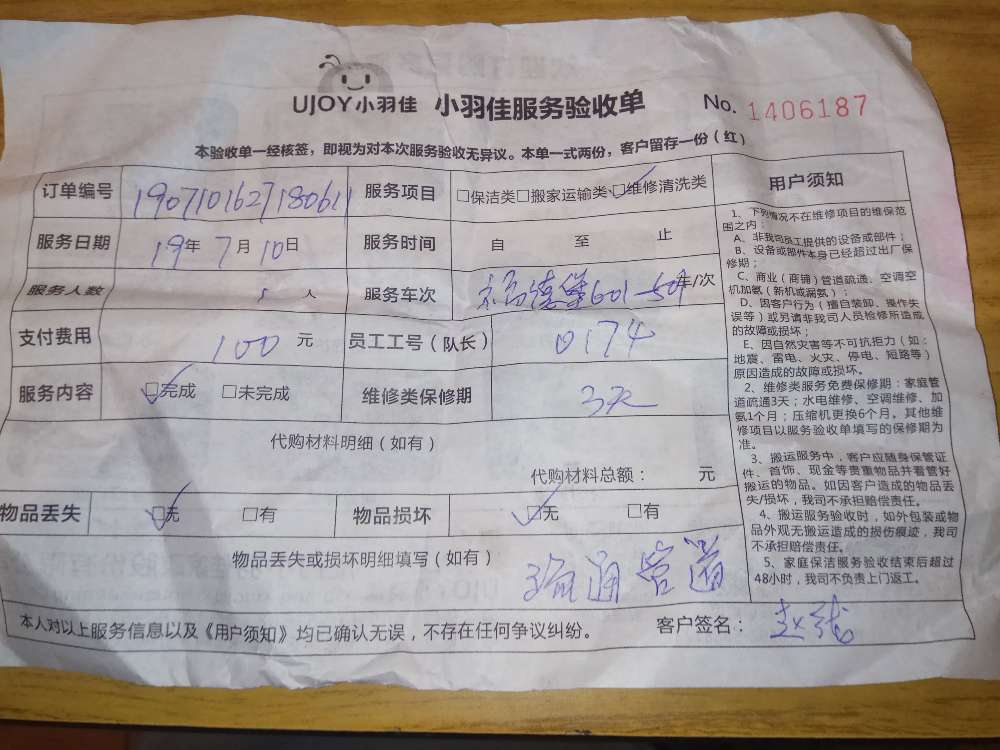 UJOY小羽佳 小羽佳服务验收单 No. 1406187
本验收单一经核签，即视为对本次服务验收无异议。本单一式两份，客户留存一份（红）
订单编号 190710162718061 服务项目 □保洁类□搬家运输类□维修清洗类
服务日期 19年7月10日 服务时间 自 至 止
服务人数 1 人 服务车次 601-501 车/次
支付费用 100 元 员工工号（队长） 0174
服务内容 □完成 □未完成 维修类保修期 3天
代购材料明细（如有）
代购材料总额： 元
物品丢失 □无 □有 物品损坏 □无 □有
物品丢失或损坏明细填写（如有）
疏通管道
本人对以上服务信息以及《用户须知》均已确认无误，不存在任何争议纠纷。 客户签名： 赵
用户须知
1、下列情况不在维修项目的维保范
围之内：
A、非我司员工提供的设备或部件；
B、设备或部件本身已经超过出厂保
修期；
C、商业（商铺）管道疏通、空调空
机加氨（新机或漏氨）；
D、因客户行为（擅自装卸、操作失
误等）或另请非我司人员检修所造成
的故障或损坏；
E、因自然灾害等不可抗拒力（如：
地震、雷电、火灾、停电、短路等）
原因造成的故障或损坏。
2、维修类服务免费保修期：家庭管
道疏通3天；水电维修、空调维修、加
氨1个月；压缩机更换6个月。其他维
修项目以服务验收单填写的保修期为
准。
3、搬运服务中，客户应随身保管证
件、首饰、现金等贵重物品并看管好
搬运的物品。如因客户造成的物品丢
失/损坏，我司不承担赔偿责任。
4、搬运服务验收时，如外包装或物
品外观无搬运造成的损伤痕迹，我司
不承担赔偿责任。
5、家庭保洁服务验收结束后超过
48小时，我司不负责上门返工。